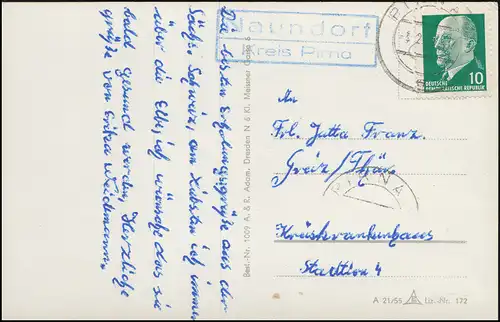 Die besten Erholungsgrüße aus der
Sächs. Schweiz, am liebsten ich immer
über die Elbe, ich wünsche das sie
bald gesund werden, Herzliche
grüße von Erika Weidemann.
Naundorf
Kreis Pirna
PIRNA
10
DEUTSCHE
DEMOKRATISCHE REPUBLIK
An
Frl. Jutta Franz.
Greiz/Thür.
PIRNA
Kreiskrankenhaus
Station 4
Best.-Nr. 1009 A. & R. Adam, Dresden N 6 Kl. Meissner Gasse
A 21/55 Liz.-Nr. 172